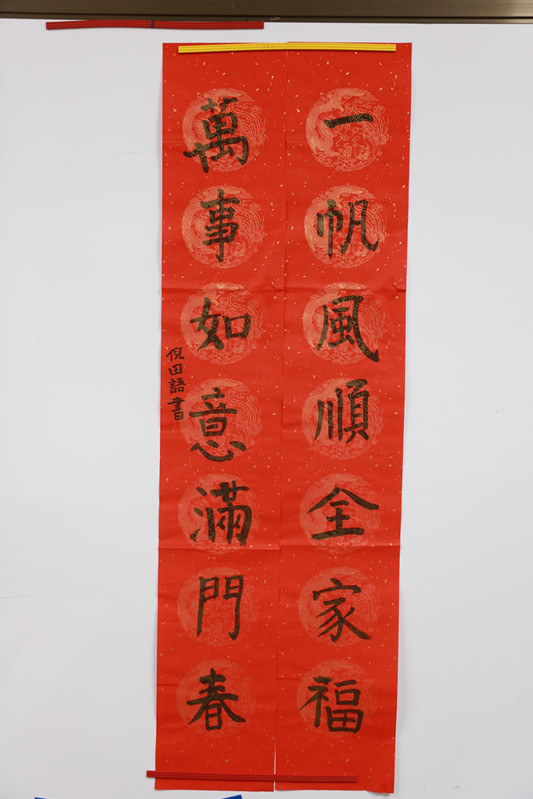 一帆風順全家福
萬事如意滿門春
倪田語書